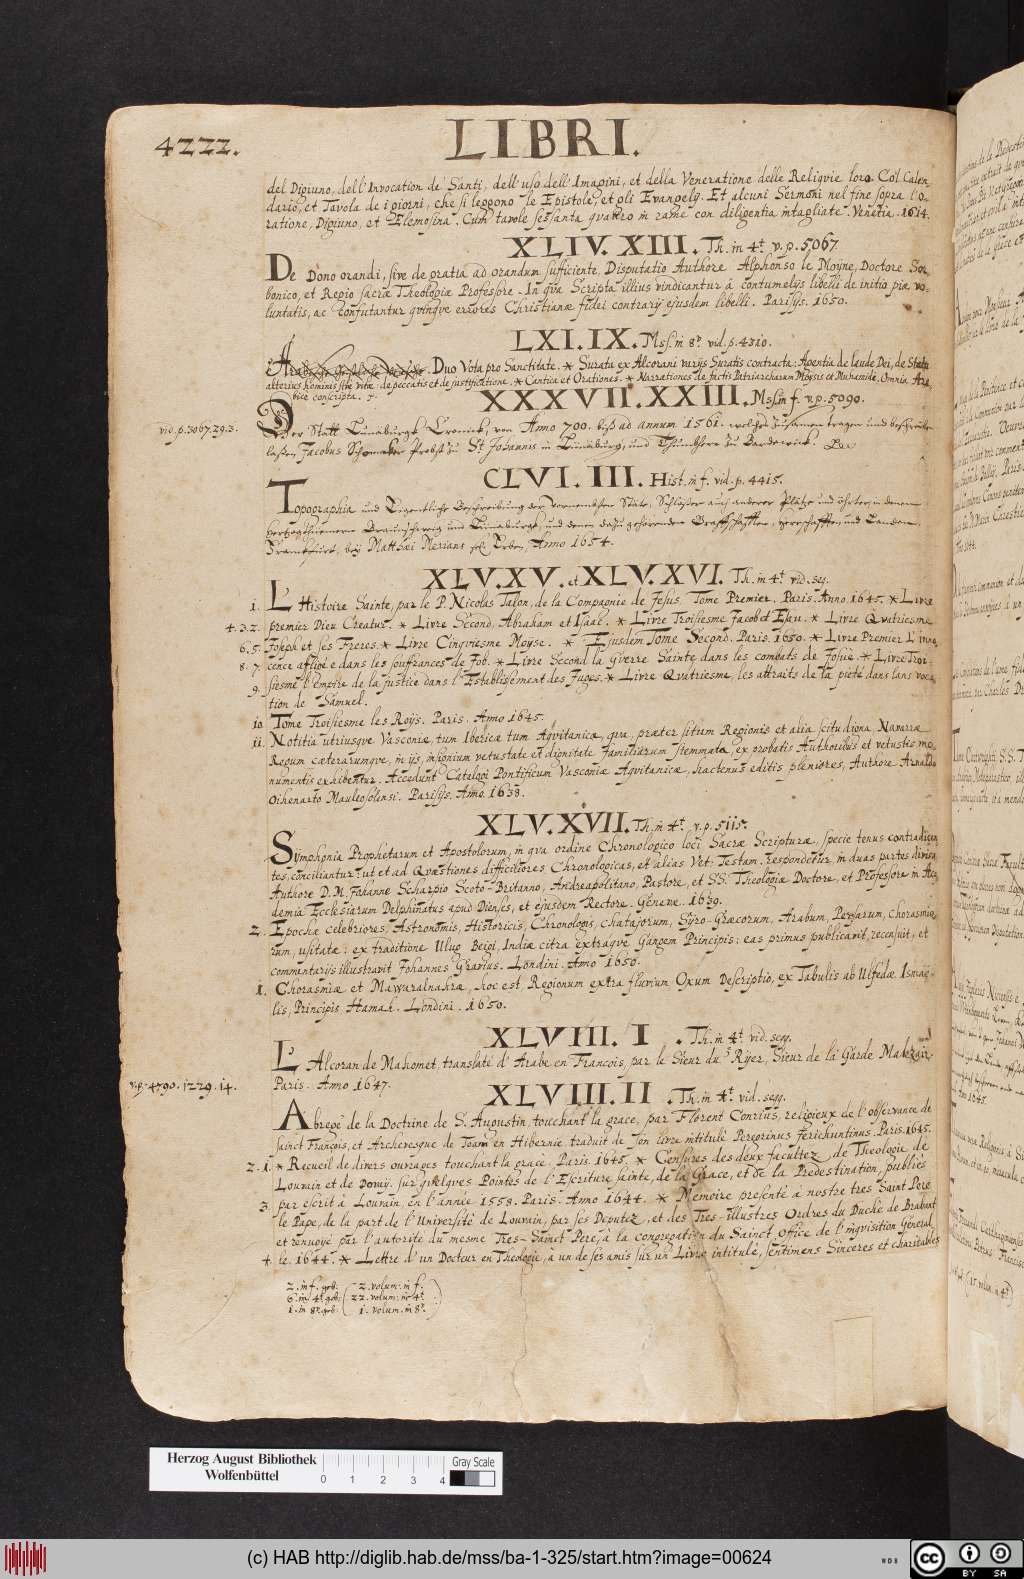 4222.
LIBRI.
del Digiuno, dell'Invocation de' Santi, dell'uso dell'Imagini, et della Veneratione delle Reliqvie loro. Col Calen-
dario, et Tavola de i giorni, che si leggono le Epistole, et gli Evangelij. Et alcuni Sermoni nel fine sopra l'O-
ratione, Digiuno, et Elemosina. Cum tavole sessanta quattro in rame con diligentia intagliate. Venetia. 1614.
XLIV. XIII. Th. in 4t. v. p. 5067.
De Dono orandi, sive de gratia ad orandum sufficiente, Disputatio Authore Alphonso le Moyne, Doctore Sor-
bonico, et Regio sacræ Theologiæ Professore. In qva Scripta illius vindicantur à contumelijs libelli de initio piæ vo-
luntatis, ac confutantur qvinqve errores Christianæ fidei contrarij ejusdem libelli. Parisijs. 1650.
LXI. IX. Mss. in 8t. vid. p. 4310.
Duo Vota pro Sanctitate. * Suratu ex Alcorani varijs Suratis contracta: Agentia de laude Dei, de Statu
alterius hominis sive vitæ: de peccatis et de justificatione. * Cantica et Orationes. * Narrationes de factis Patriarcharum Moysis et Muhamedis. Omnia Ara-
bicè conscripta.
XXXVII. XXIII. Mss. in f. v. p. 5090.
vid. p. 3067. 29. 3.
Der Statt Lüneburgk Cronick, von Anno 700. biß ad annum 1561. welche zusamen tragen und beschrieben
laßen Jacobus Schomaker Probst zu St. Johannis in Lüneburg, und Thumbherr zu Bardowick.
CLVI. III. Hist. in f. vid. p. 4415.
Topographia und Eigentliche Beschreibung der vornembsten Stäte, Schlösser auch anderer Plätze und öhrter in denen
Hertzogthümern Braunschweig und Lüneburgk, und denen dazu gehörenden Graffschafften, Herrschafften, und Landen.
Franckfurt, bey Matthæi Merians sel. Erben, Anno 1654.
XLV. XV. et XLV. XVI. Th. in 4t. vid. seq.
1. L'Histoire Sainte, par le P. Nicolas Talon, de la Compagnie de Jesus. Tome Premier. Paris. Anno. 1645. * Livre
4. 3. 2. premier Dieu Createur. * Livre Second, Abraham et Isaac. * Livre Troisiesme Jacob et Esau. * Livre Qvatriesme
6. 5. Joseph et ses Freres. * Livre Cinqviesme Moyse. * Ejusdem Tome Second. Paris. 1650. * Livre Premier L'inno-
8. 7. cence affligée dans les souffrances de Job. * Livre Second la Gverre Sainte dans les combats de Josué. * Livre Troi-
9. siesme l'Empire de la justice dans l'Establissement des Juges. * Livre Qvatriesme, les attraits de la pieté dans lans voca-
tion de Samuel.
10. Tome Troisiesme les Roys. Paris. Anno 1645.
11. Notitia utriusqve Vasconiæ, tum Ibericæ tum Aqvitanicæ, qva, præter situm Regionis et alia scitu digna, Navarræ
Regum cæterarumqve, in ijs, insignium vetustate et dignitate familiarum stemmata ex probatis Authoribus et vetustis mo-
numentis exhibentur. Accedunt Catalogi Pontificum Vasconiæ Aqvitanicæ, hactenus editis pleniores, Authore Arnaldo
Oihenarto Mauleosolensi. Parisijs. Anno. 1638.
XLV. XVII. Th. in 4t. v. p. 5115.
Symphonia Prophetarum et Apostolorum, in qva ordine Chronologico loci Sacræ Scripturæ, specie tenus contradicen-
tes, conciliantur: ut et ad Qvæstiones difficiliores Chronologicas, et alias Vet: Testam. respondetur, in duas partes divisa
Authore D. M. Johanne Scharpio Scoto-Britanno, Andreapolitano, Pastore, et SS. Theologiæ Doctore, et Professore in Aca-
demia Ecclesiarum Delphinatus apud Dienses, et ejusdem Rectore. Genevæ. 1639.
2. Epochæ celebriores, Astronomis, Historicis, Chronologis, Chatajorum, Syro-Græcorum, Arabum, Persarum, Chorasmio-
rum, usitatæ: ex traditione Ulug Beigi, Indiæ citra extraqve Gangem Principis: eas primus publicavit, recensuit, et
commentarijs illustravit Johannes Gravius. Londini. Anno 1650.
1. Chorasmiæ et Mawaralnahræ, hoc est, Regionum extra fluvium Oxum Descriptio, ex Tabulis ab Ulfedæ Ismaë-
lis, Principis Hamah. Londini. 1650.
XLVIII. I. Th. in 4t. vid. seqq.
L'Alcoran de Mahomet translaté d'Arabe en François, par le Sieur du Ryer, Sieur de la Garde Malezair.
Paris. Anno 1647.
XLVIII. II. Th. in 4t. vid. seqq.
v. p. 4790. 1229. 14.
Abregé de la Doctrine de S. Augustin, touchant la grace, par Florent Conrius, religieux de l'observance de
sainct François, et Archevesque de Toam en Hibernie traduit de son livre intitulé Peregrinus Jerichuntinus. Paris. 1645.
2. 1. * Recueil de divers ouvrages touchant la grace. Paris. 1645. * Censures des deux facultez, de Theologie de
Louvain et de Douay. sur quelqves Pointes de l'Escriture sainte, de la Grace, et de la Predestination, publiés
3. par escrit à Louvain, en l'année 1558. Paris. Anno 1644. * Memoire presenté à nostre tres Saint Pere
le Pape, de la part de l'Université de Louvain, par ses Deputez, et des Tres-illustres Ordres du Duché de Brabant
et renvoyé par l'autorité du mesme Tres-Sainct Pere, à la congregation du Sainct Office de l'inqvisition Général
4. le. 1644. * Lettre d'un Docteur en Theologie, à un de ses amis sur un Livre intitulé, sentimens Sinceres et charitables
2. in f. geb: ( 2. volum: in f. )
6. in 4t. geb: ( 22. volum: in 4t. )
1. in 8t. geb: ( 1. volum. in 8t. )
Herzog August Bibliothek
Wolfenbüttel
0 1 2 3 4
Gray Scale
(c) HAB http://diglib.hab.de/mss/ba-1-325/start.htm?image=00624
WDB
CC BY SA